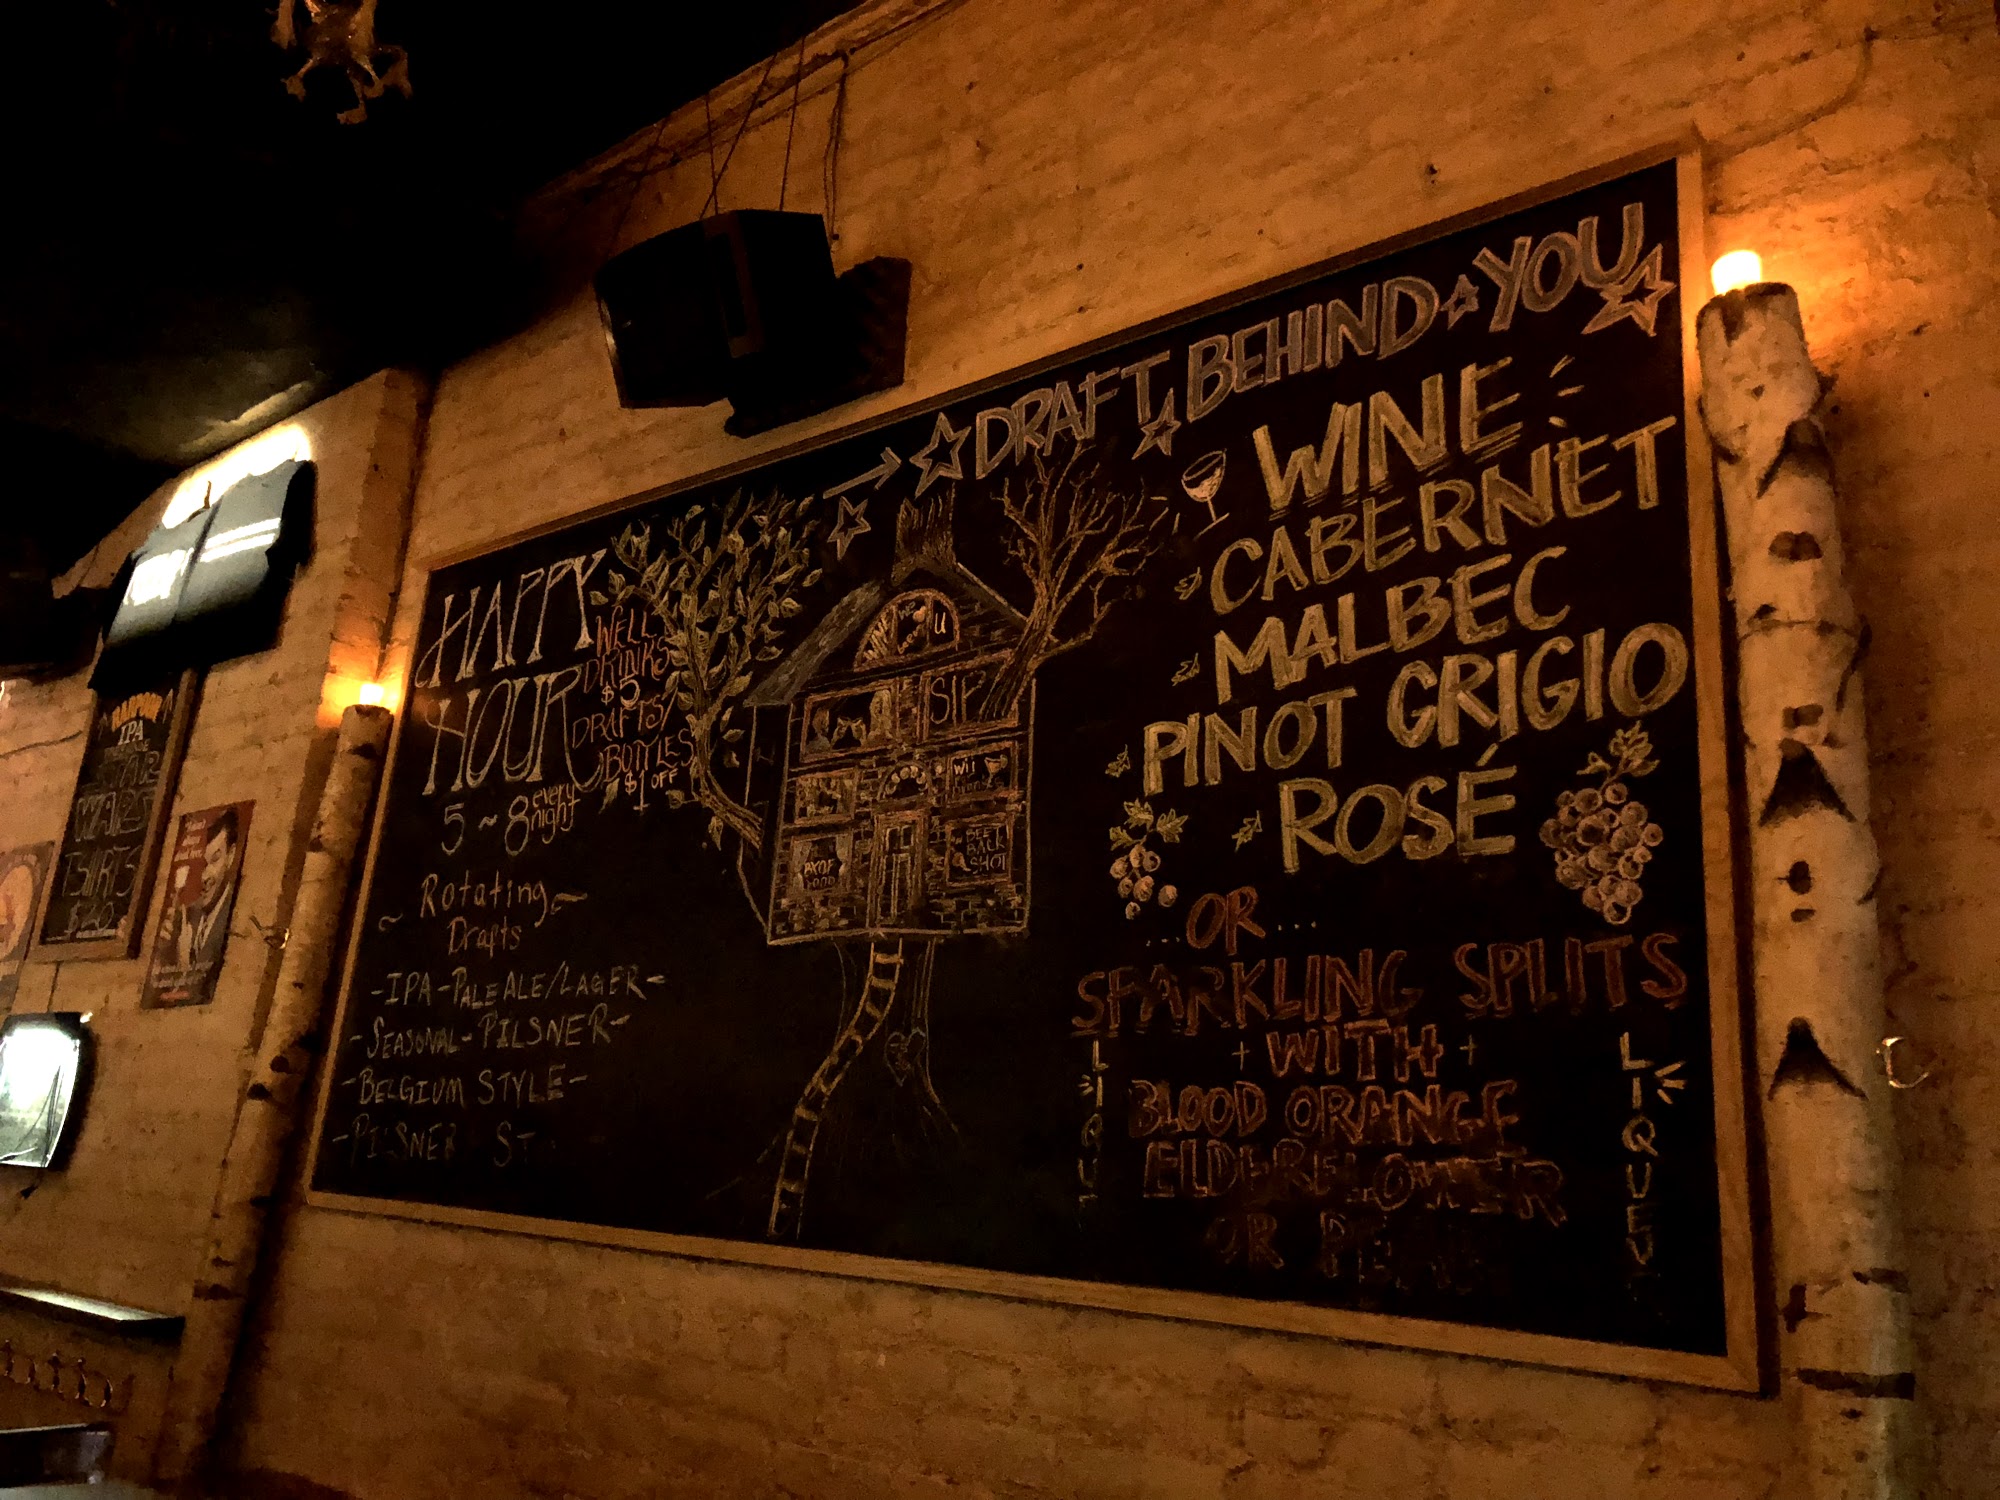 DRAFT BEHIND YOU
HAPPY
HOUR
5 ~ 8 every
night
WELL
DRINKS
$5
DRAFTS/
BOTTLES
$1 OFF
~ Rotating ~
Drafts
-IPA-PALE ALE/LAGER-
-SEASONAL-PILSNER-
-BELGIUM STYLE-
-PILSNER
WINE
U
SIP
BEET
BACK
SHOT
WINE
CABERNET
MALBEC
PINOT GRIGIO
ROSÉ
...OR...
SPARKLING SPLITS
+WITH+
BLOOD ORANGE
ELDERFLOWER
OR
IPA
STAR
WARS
TSHIRTS
$20